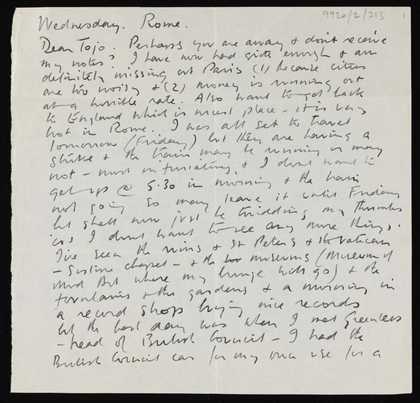 9920/2/213
1
Wednesday. Rome.
Dear Jojo. Perhaps you are away & don't receive
my notes? I have now had quite enough & am
definitely missing out Paris (1) because cities
are too noisy & (2) money is running out
at a horrible rate. Also want to get back
to England which is nicest place - it is very
hot in Rome. I was all set to travel
tomorrow (Friday) but they are having a
strike & the train may be running or may
not - most infuriating, & I don't want to
get up @ 5.30 in morning & the train
not going. So may leave it until Friday
but shall now just be twiddling my thumbs
'cos I don't want to see any more things.
I've seen the ruins & St Peters & the Vatican
- Sistine chapel - & the museums (Museum of
Mod Art where my things go) & the
fountains & the gardens & a morning in
a record shop buying nice records
but the best day was when I met Greenlees
- head of British Council - I had the
British Council car for my own use for a